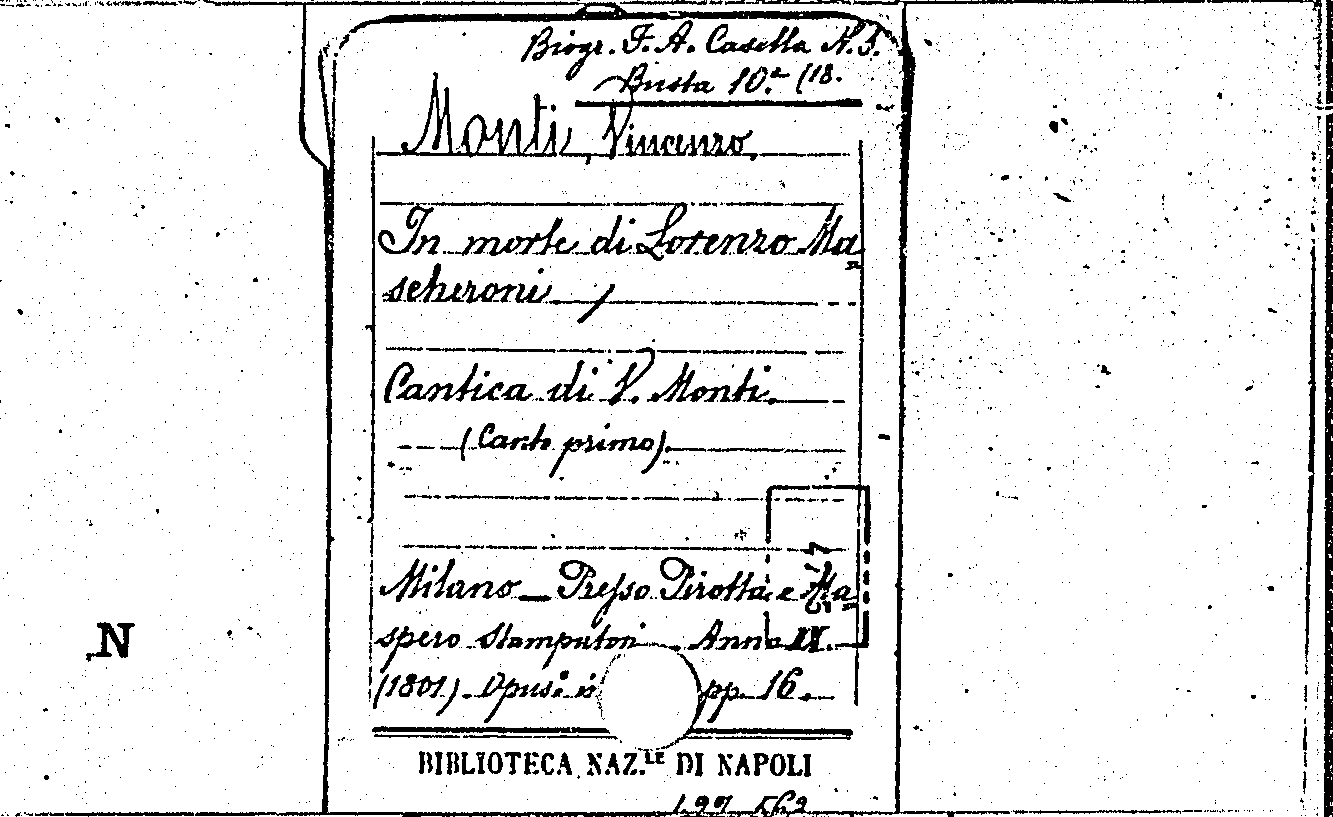 Biogr. F. A. Casella N. 5.
Busta 10.ª (18.
Monti, Vincenzo,
In morte di Lorenzo Ma=
scheroni,
Cantica di V. Monti.
(Canto primo).
Milano – Presso Pirotta e Ma=
spero Stampatori Anno IX.
(1801). Opusc. pp. 16.
N
BIBLIOTECA NAZ.LE DI NAPOLI